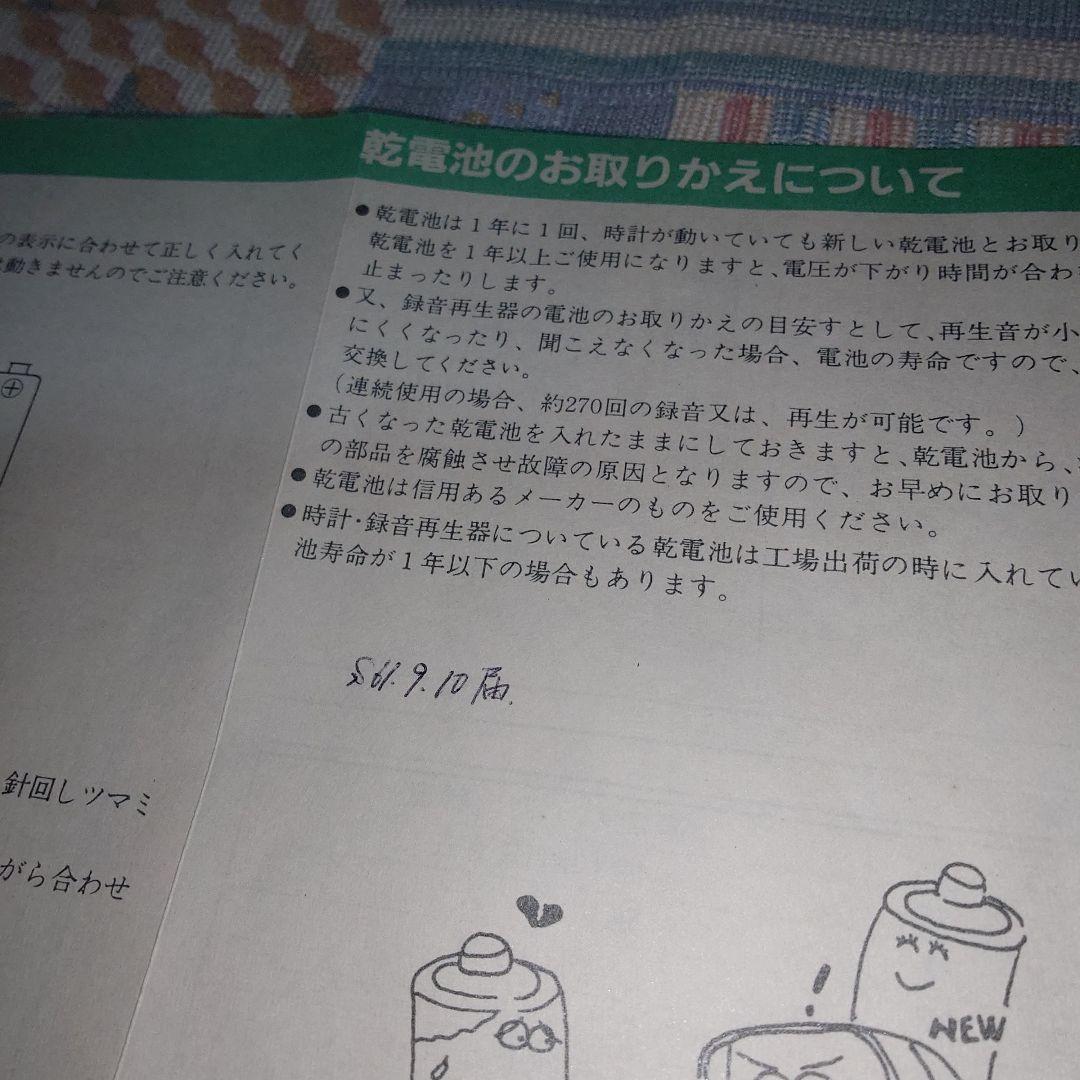 乾電池のお取りかえについて
の表示に合わせて正しく入れてく
動きませんのでご注意ください。
⊕
針回しツマミ
がら合わせ
●乾電池は1年に1回、時計が動いていても新しい乾電池とお取り
乾電池を1年以上ご使用になりますと、電圧が下がり時間が合わ
止まったりします。
●又、録音再生器の電池のお取りかえの目安すとして、再生音が小
にくくなったり、聞こえなくなった場合、電池の寿命ですので、
交換してください。
(連続使用の場合、約270回の録音又は、再生が可能です。)
●古くなった乾電池を入れたままにしておきますと、乾電池から、
の部品を腐蝕させ故障の原因となりますので、お早めにお取り
●乾電池は信用あるメーカーのものをご使用ください。
●時計・録音再生器についている乾電池は工場出荷の時に入れてい
池寿命が1年以下の場合もあります。
S61.9.10届.
!
NEW